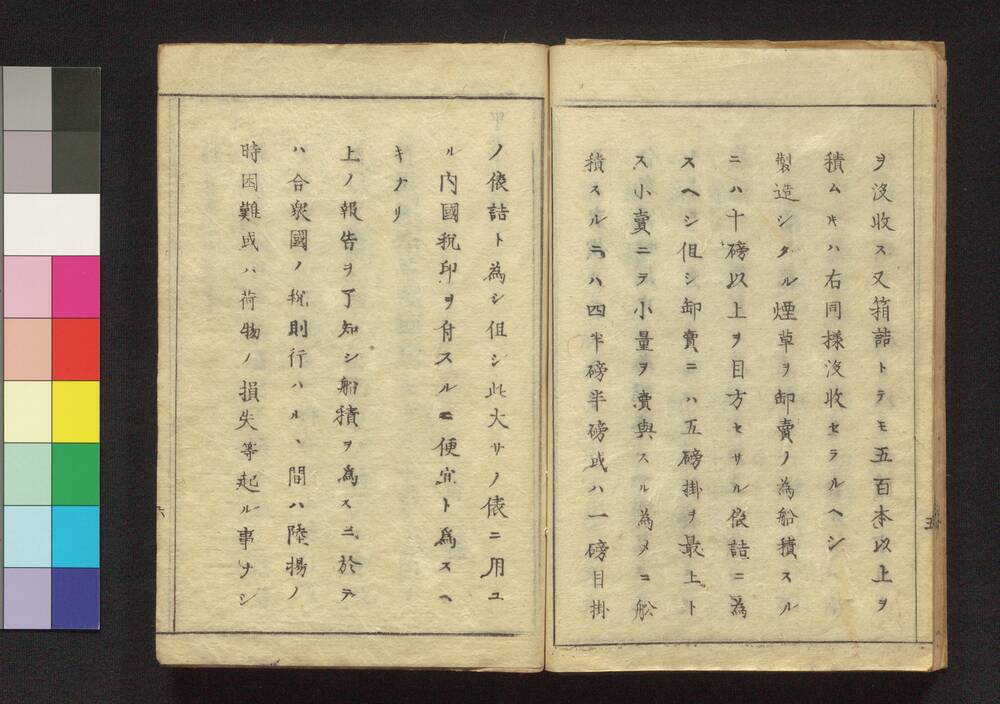 ヲ沒收ス又箱詰トテモ五百本以上ヲ
積ムキハ右同樣沒收セラルヘシ
製造シタル煙草ヲ卸賣ノ為船積スル
ニハ十磅以上ヲ目方セサル俵詰ニ為
スヘシ但シ卸賣ニハ五磅掛ヲ最上ト
ス小賣ニテ小量ヲ賣與スル為メニ舩
積スルニハ四半磅半磅或ハ一磅目掛
五
ノ俵詰ト為シ但シ此大サノ俵ニ用ユ
ル內國稅印ヲ付スルニ便宜ト為スヘ
キナリ
上ノ報告ヲ了知シ船積ヲ為スニ於テ
ハ合衆國ノ稅則行ハルヽ間ハ陸揚ノ
時困難或ハ荷物ノ損失等起ル事ナシ
六